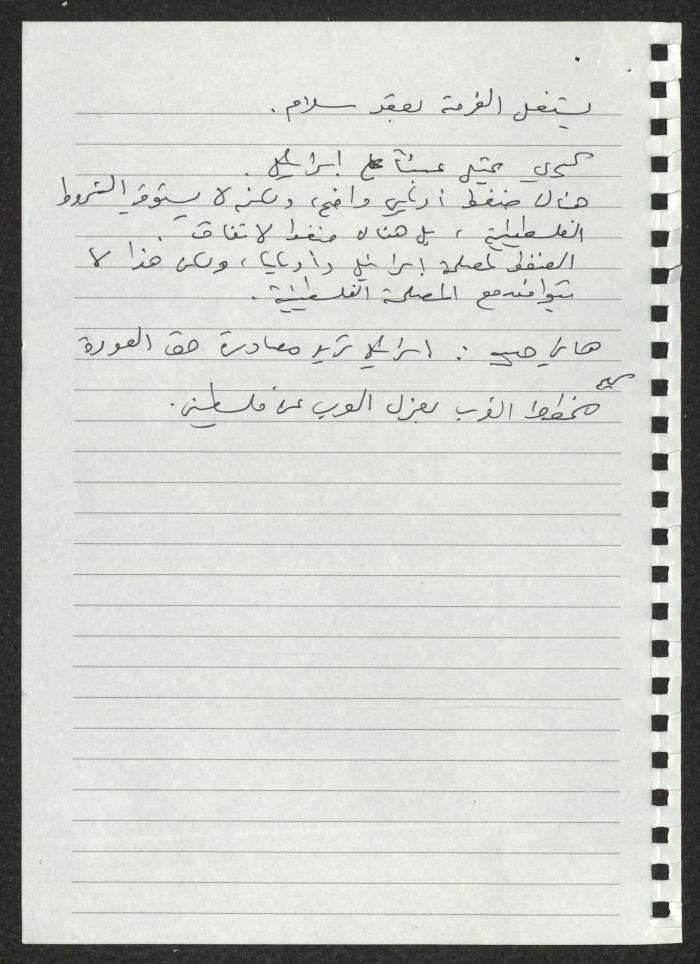 يستغل الفرصة لعقد سلام.
يمثل عبئاً على إسرائيل.
هناك ضغط أوبامي واضح، ولكنه لا يستوفي الشروط
الفلسطينية، بل هناك ضغط لاتفاق
الضغط لمصلحة إسرائيل وأوباما، ولكن هذا لا
يتوافق مع المصلحة الفلسطينية.
هاني : إسرائيل تريد مصادرة حق العودة
مخطط الغرب بعزل العرب عن فلسطين.